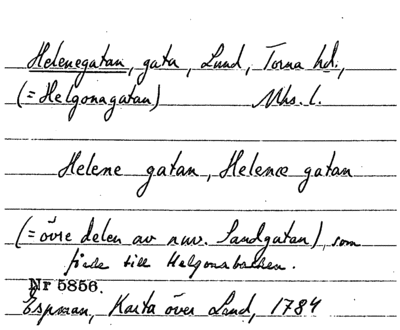 Helenegatan, gata, Lund, Torna hd.,
(=Helgonagatan) Mhs. l.
Helene gatan, Helenæ gatan
(=övre delen av nuv. Sandgatan), som
förde till Helgonabacken.
Nr 5856.
Espman, Karta över Lund, 1784